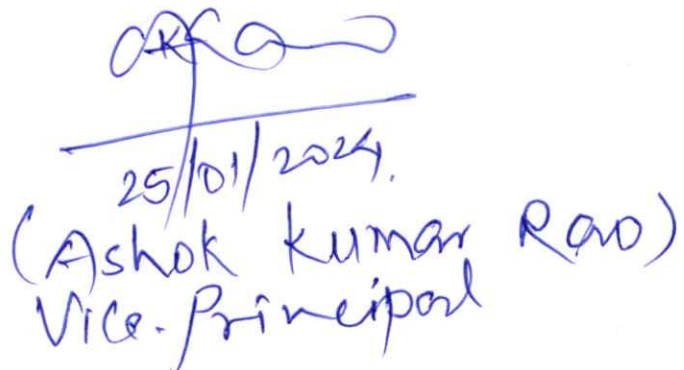 25/01/2024.
(Ashok Kumar Rao)
Vice-Principal